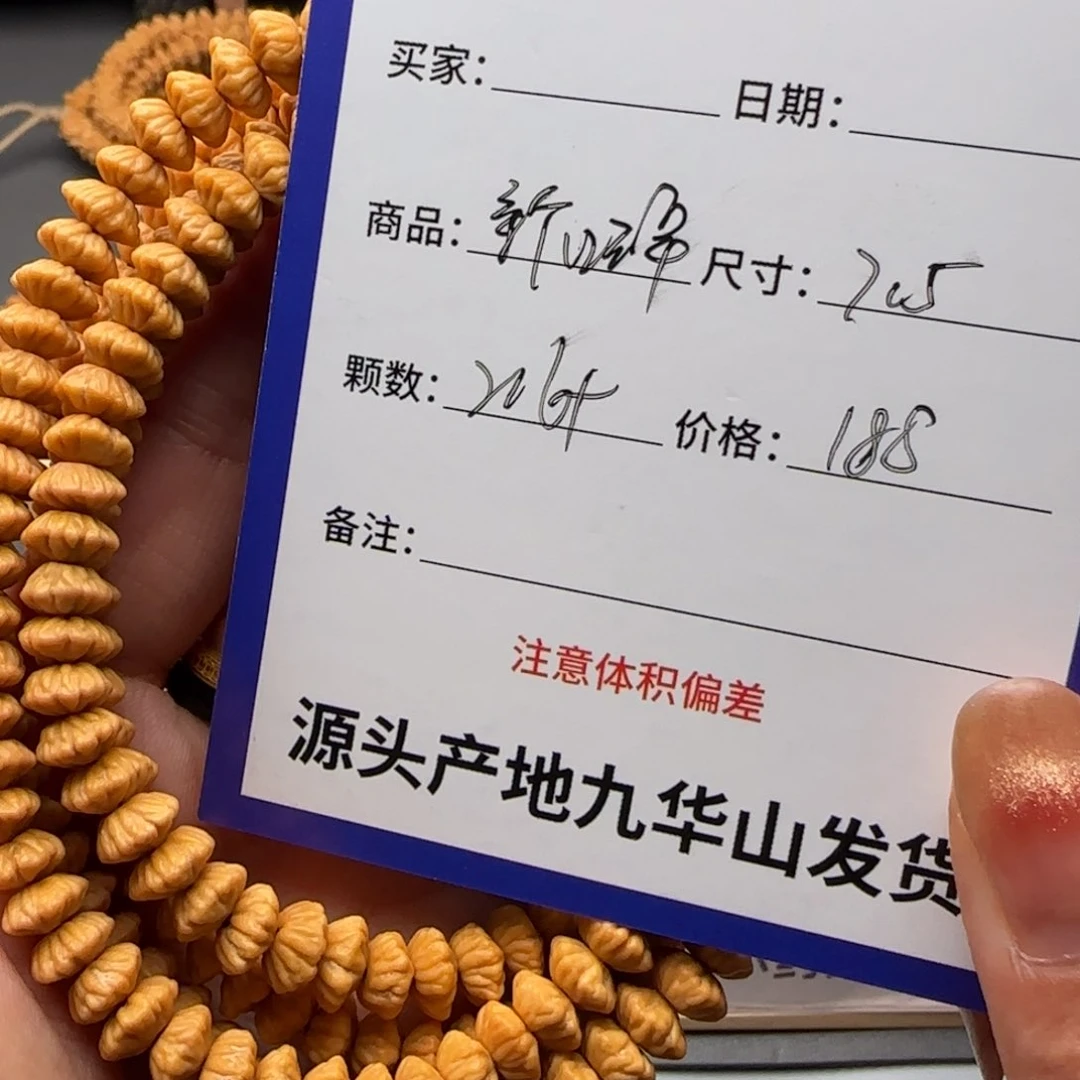 买家： 日期：
商品： 尺寸： 7.5
颗数： 价格： 188
备注：
注意体积偏差
源头产地九华山发货